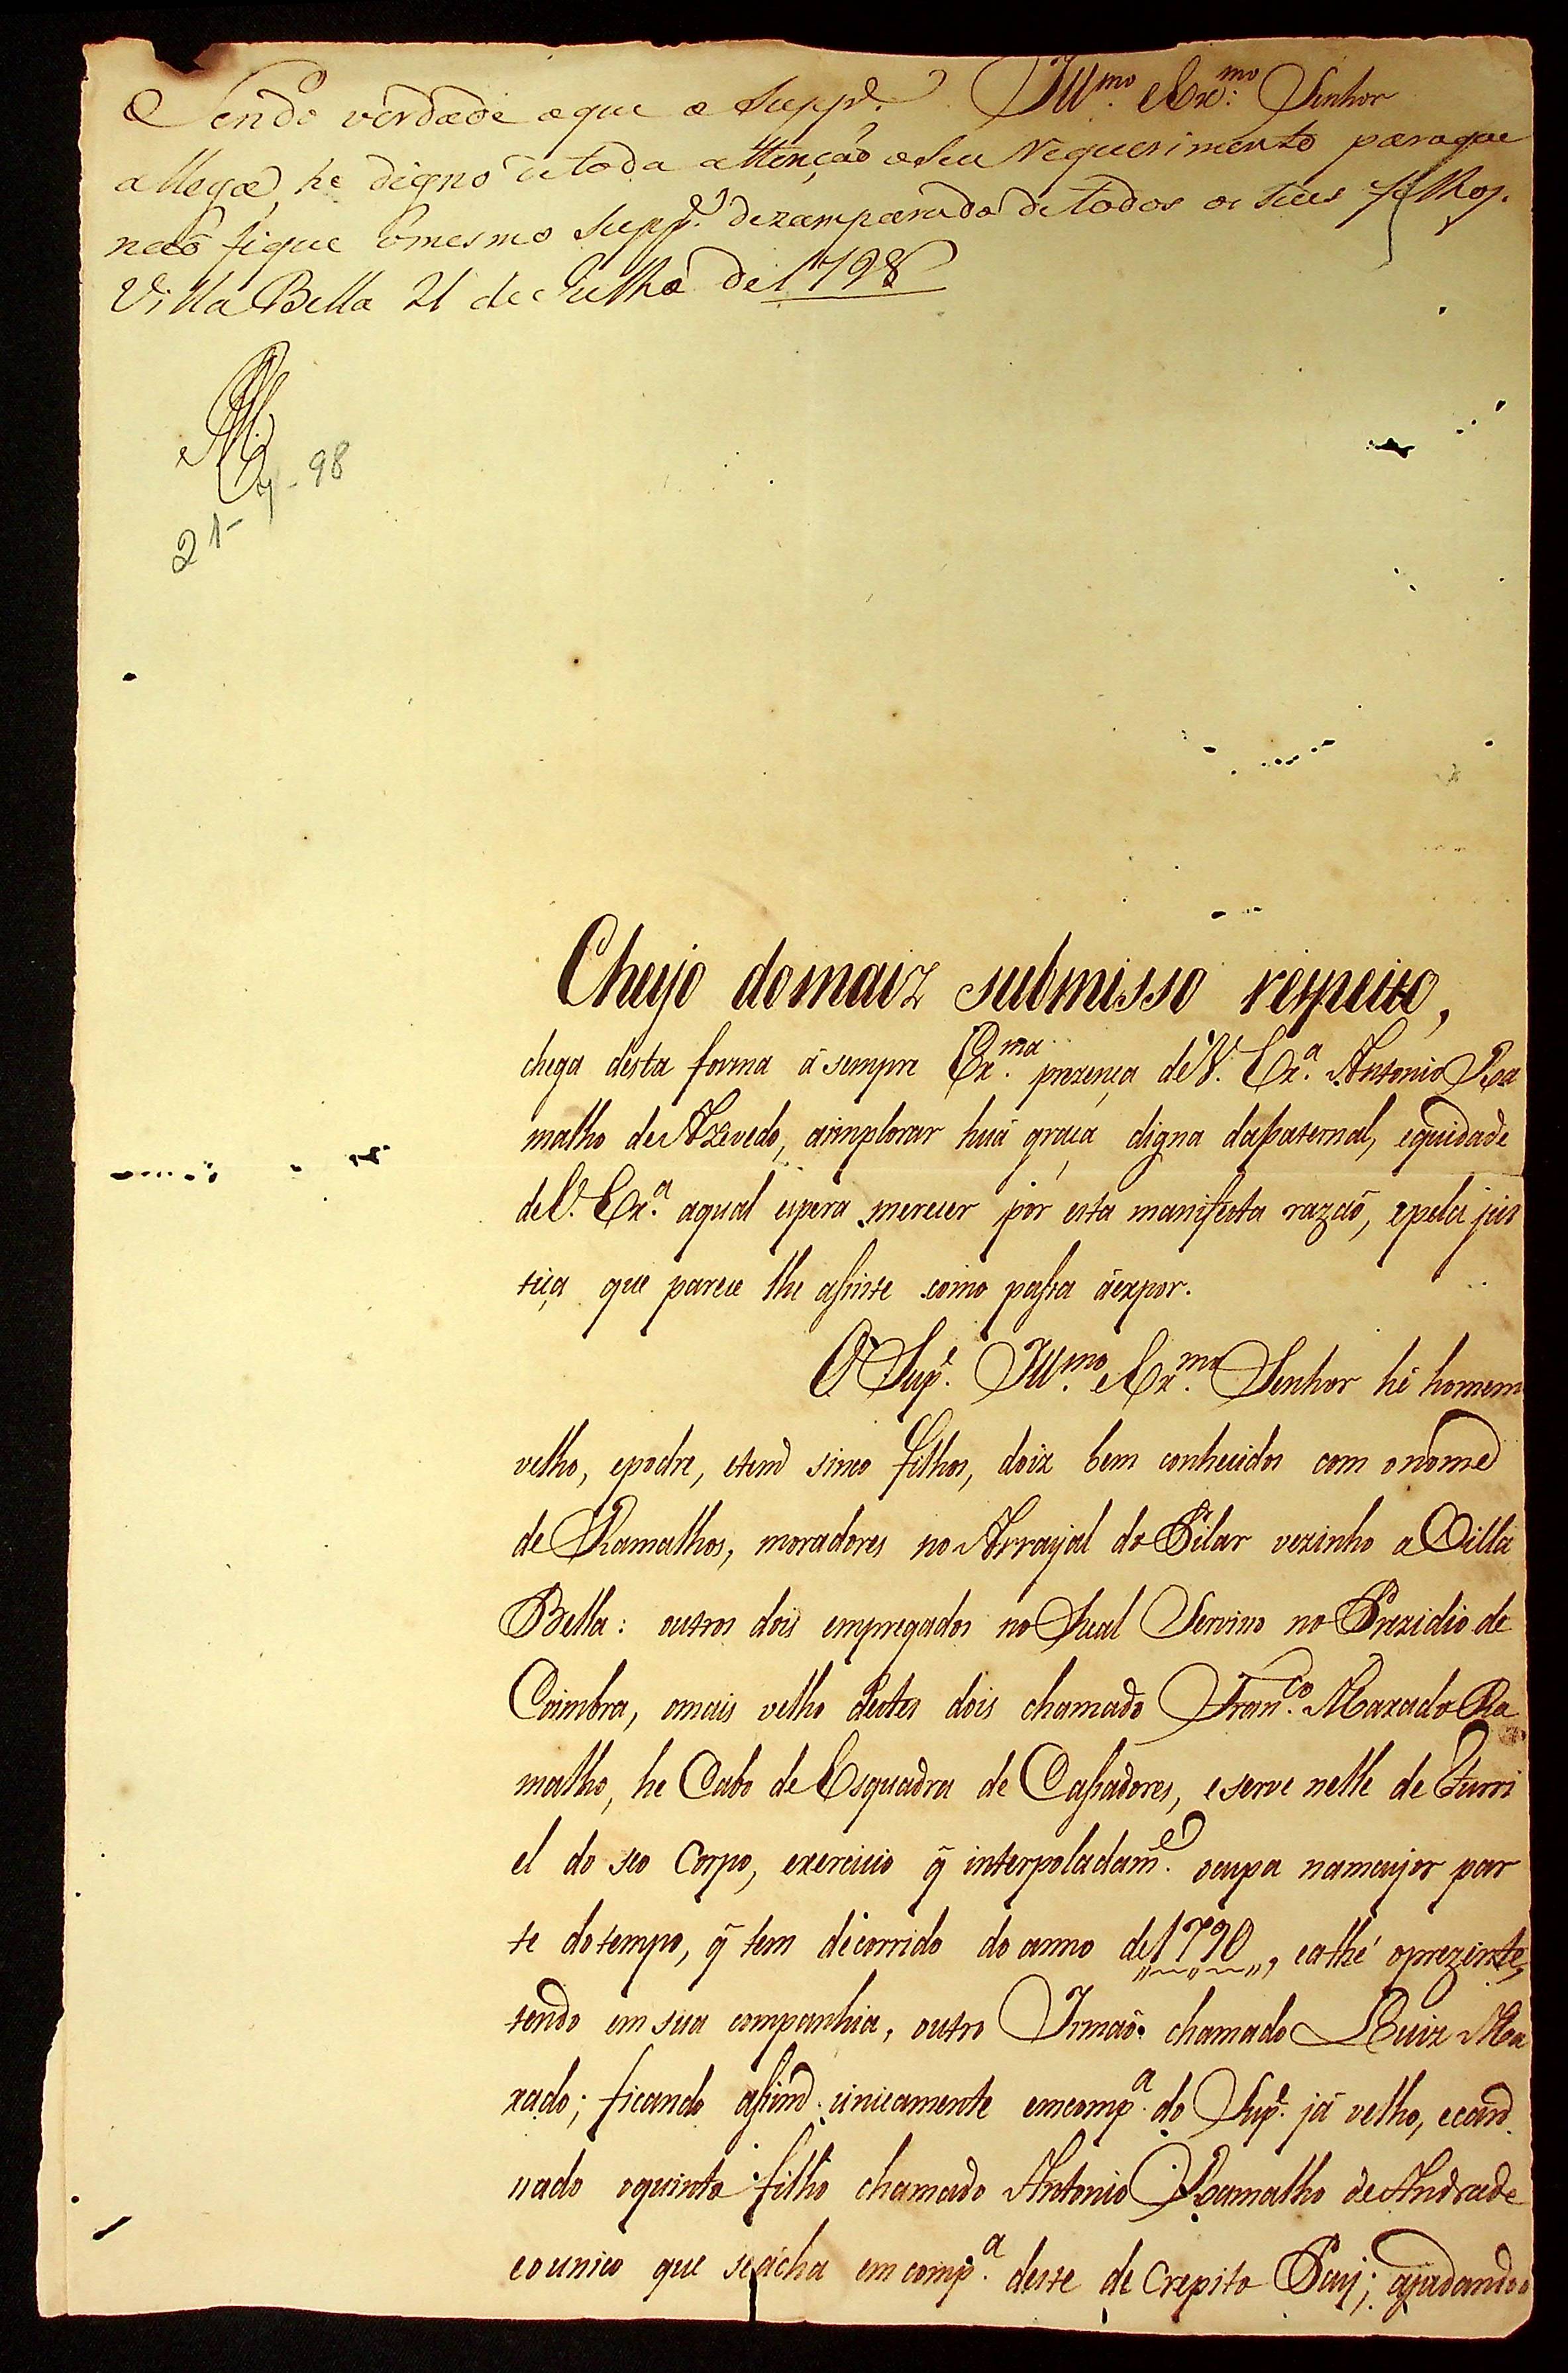 Ill.mo e Ex.mo Senhor
Sendo verdade oque o Supp.e
allega, he digno detoda attenção oseu requerimento paraque
não fique omesmo Supp.e dezamparado detodos os seus filhos.
Villa Bella 21 de Julho de 1798
21-7-98
Cheyo domaiz submisso respeito,
chega désta forma á sempre Ex.ma prezença de V. Ex.a Antonio Ra
malho de Azevedo, aimplorar huá graça digna dapaternal, equidade
de V. Ex.a aqual espera merecer por esta manifesta razaõ, epela jus
tiça que parece lhe assiste como passa áexpor.
O Sup.e Ill.mo e Ex.mo Senhor hé homem
velho, epobre, etem sinco filhos, doiz bem conhecidos com onome
de Ramalhos, moradores no Arrayal do Pilar vezinho a Villa
Bella: outros dois empregados no Real Serviso no Prezidio de
Coimbra, omais velho destes dois chamado Fran.co Maxado Ra
malho, he Cabo de Esquadra de Cassadores, e serve nelle de Furri
el do seo Corpo, exercicio q̃ interpoladam.e ocupa namayor par
te dotempo, q̃ tem decorrido do anno de 1790, eathé oprezente,
tendo em sua companhia, outro Irmaõ chamado Luiz Ma
xado; ficando assim unicamente emcomp.a do Sup.e já velho, ecan
sado oquinto filho chamado Antonio Ramalho de Andrade
eounico que seácha em comp.a deste de crepito Pay; ajudandoo